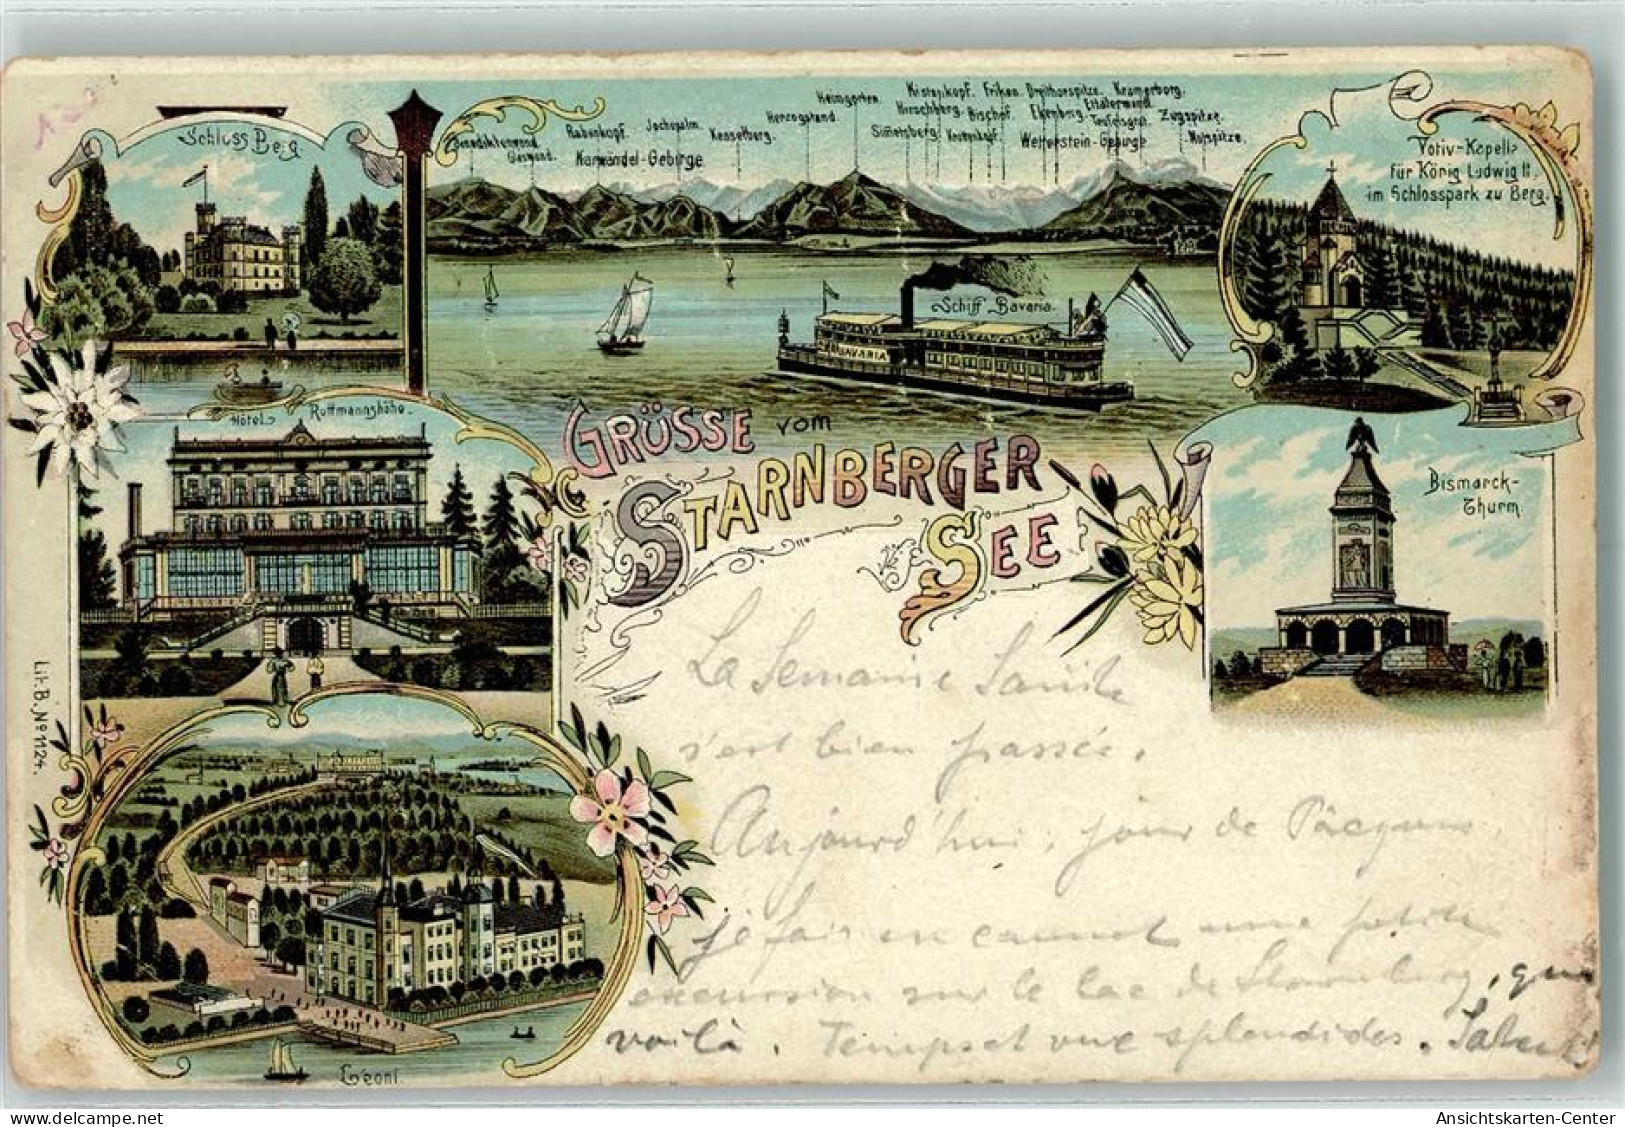 Schloss Berg
Benediktenwand.
Glaswand.
Rabenkopf.
Jochspalm.
Karwändel-Gebirge
Kesselberg.
Herzogstand.
Heimgarten.
Kistenkopf. Friken. Dreithorspitze. Kramerberg.
Hirschberg. Bischof. Ekenberg. Ettalerwand.
Simetsberg. Krottenkopf. Teufelsgrat. Zugspitze.
Wetterstein-Gebirge
Schiff Bavaria.
BAVARIA
Votiv-Kapelle
für König Ludwig II.
im Schlosspark zu Berg.
Hôtel Rottmannshöhe.
GRÜSSE vom
STARNBERGER
SEE
Bismarck-
Thurm.
Lit. B. No 1124.
Leoni.
La Semaine Sainte
s'est bien passée.
Aujourd'hui, jour de Pâques,
je fais en canot une petite
excursion sur le lac de Starnberg, que
voilà. Temps et vue splendides.
Ansichtskarten-Center